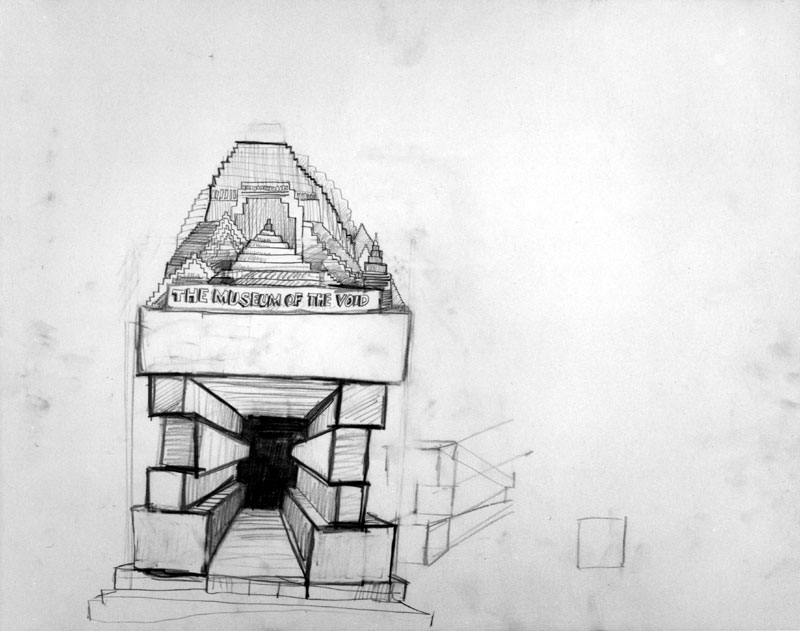 THE MUSEUM OF THE VOID